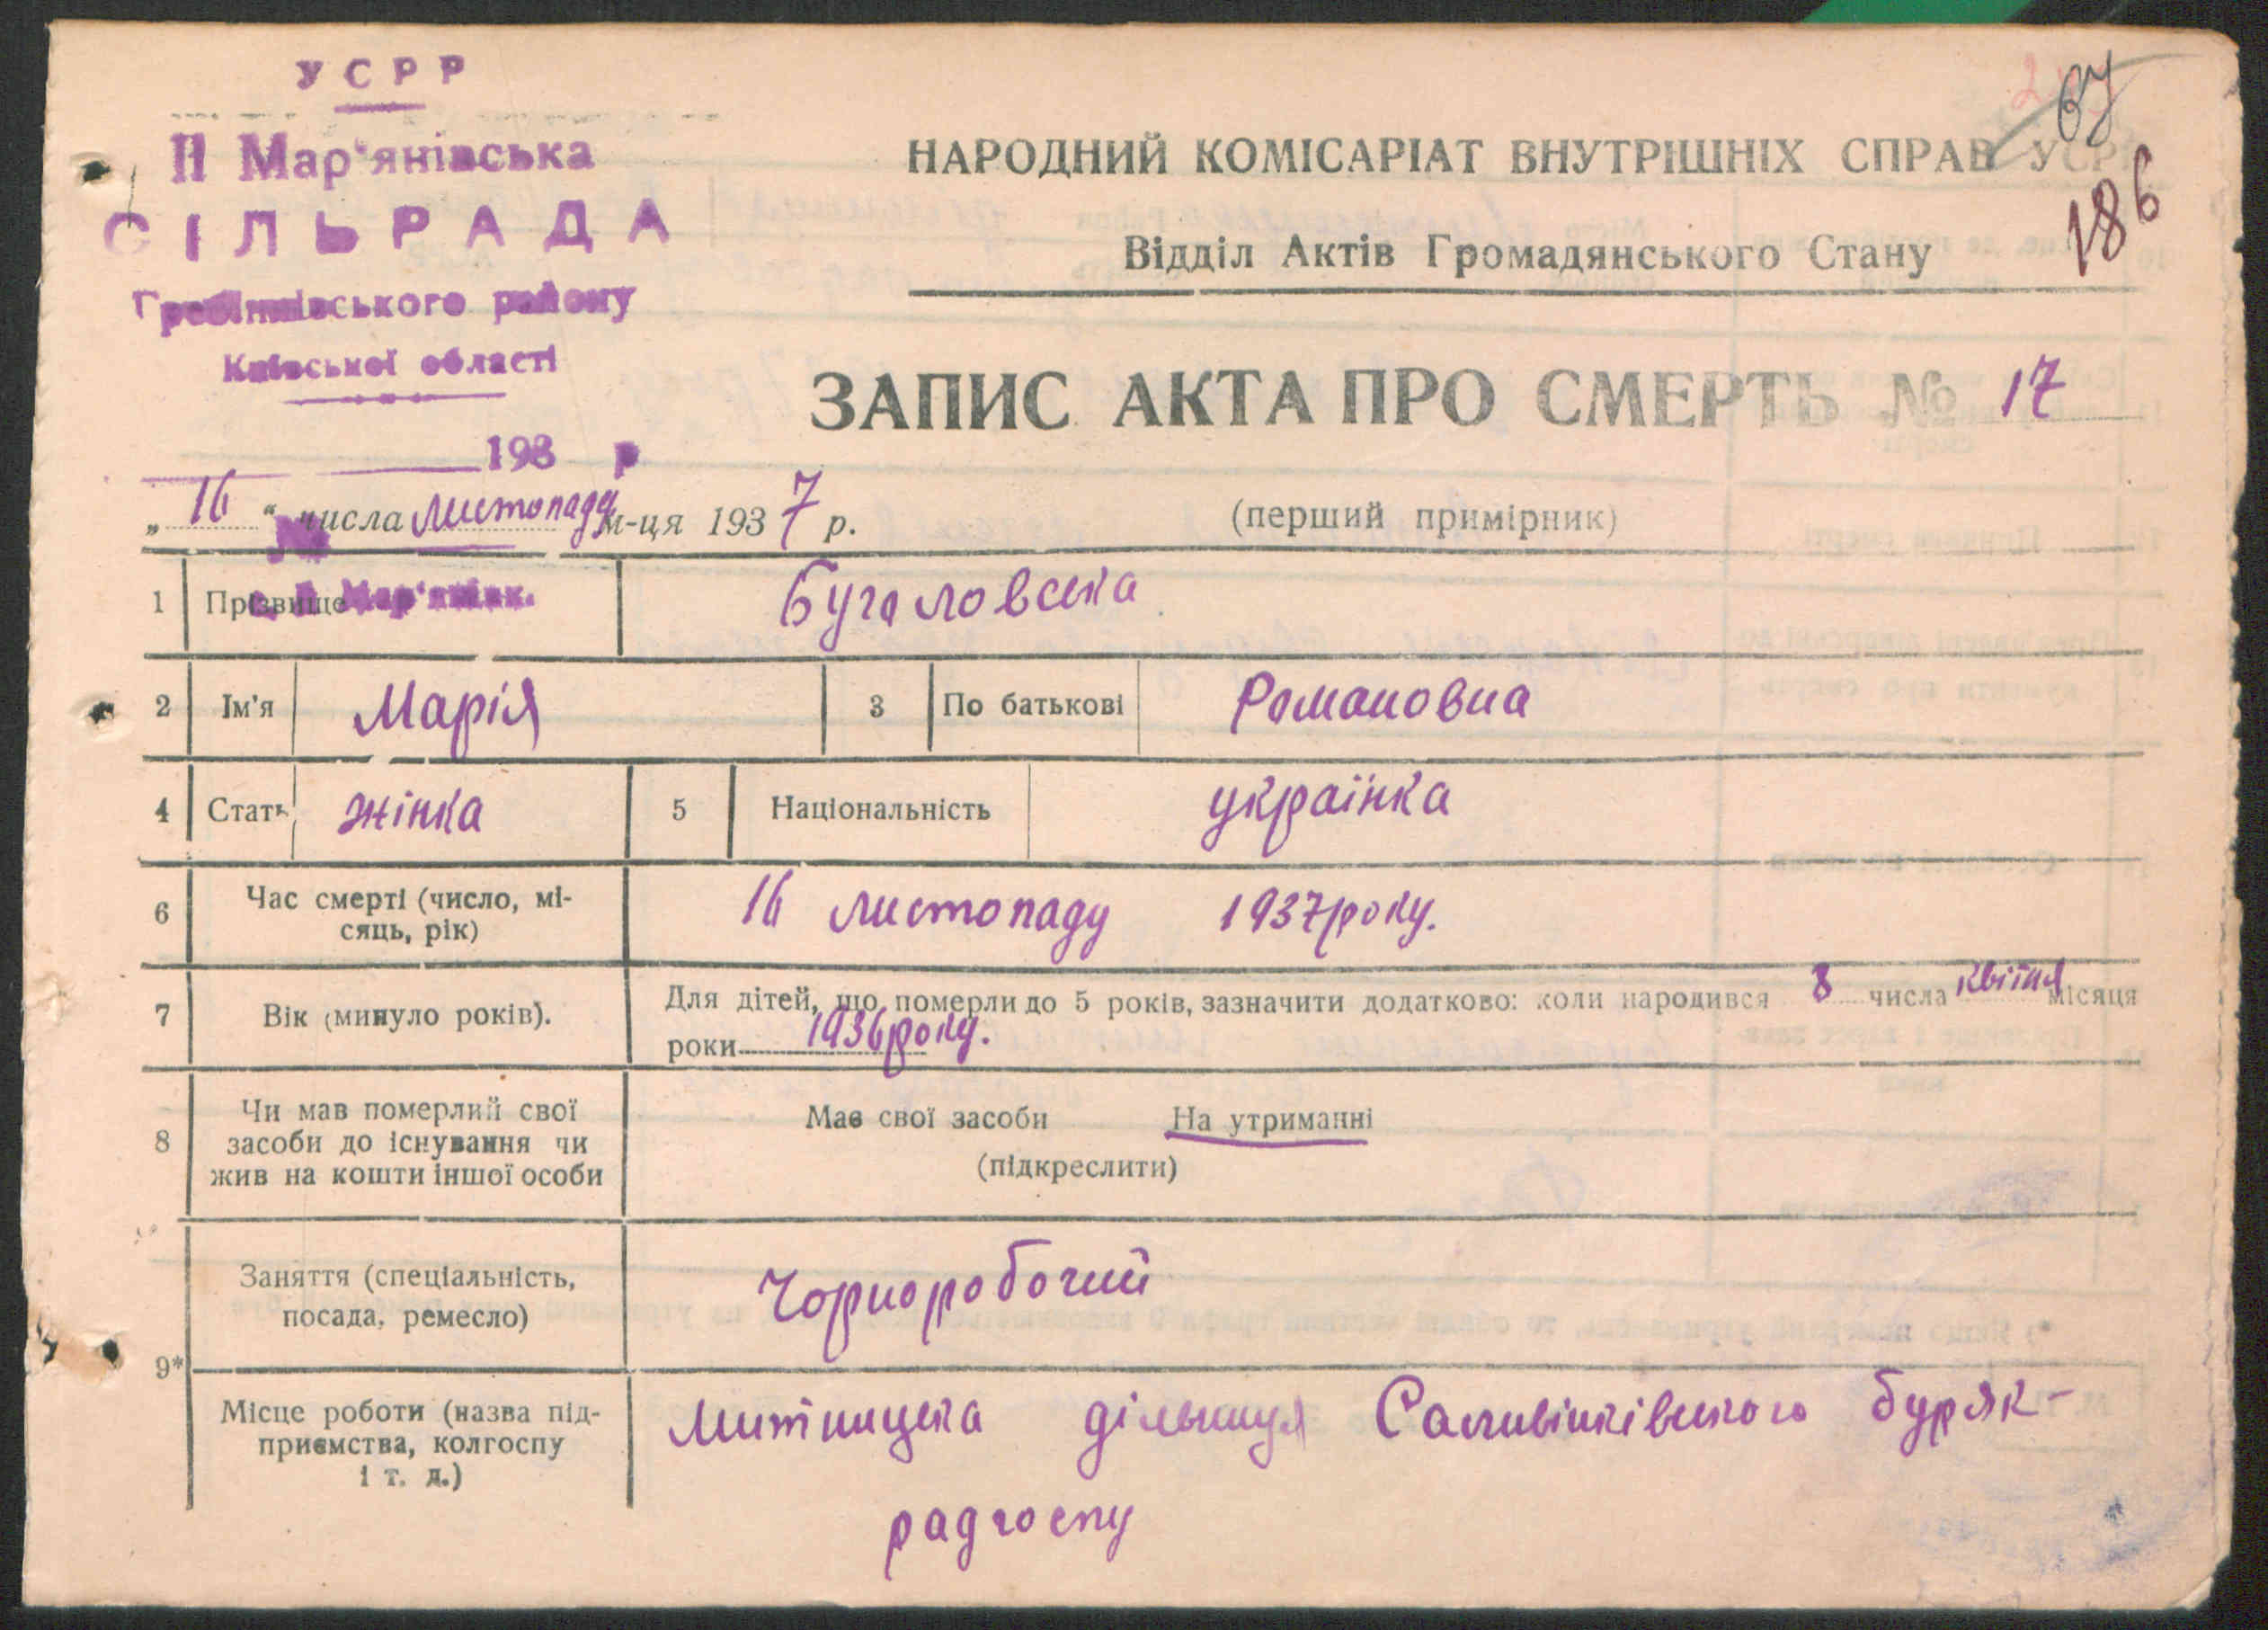 УСРР
ІІ Мар'янівська
СІЛЬРАДА
Гребінківського району
Київської області
193 р
67
186
НАРОДНИЙ КОМІСАРІАТ ВНУТРІШНІХ СПРАВ УСРР
Відділ Актів Громадянського Стану
ЗАПИС АКТА ПРО СМЕРТЬ № 17
„16“ числа листопаду м-ця 1937 р.
(перший примірник)
№
с. ІІ Мар'янівк.
1 Прізвище Бугаловська
2 Ім'я Марія 3 По батькові Романовна
4 Стать жінка 5 Національність українка
6 Час смерті (число, мі-
сяць, рік)
16 листопаду 1937 року.
7 Вік (минуло років).
Для дітей, що померли до 5 років, зазначити додатково: коли народився 8 числа квітня місяця
роки 1936 року.
8 Чи мав померлий свої
засоби до існування чи
жив на кошти іншої особи
Має свої засоби На утриманні
(підкреслити)
9* Заняття (спеціальність,
посада, ремесло)
Чорноробочий
Місце роботи (назва під-
приємства, колгоспу
і т. д.)
Митницька дільниця Саливінківського буряк-
радгоспу